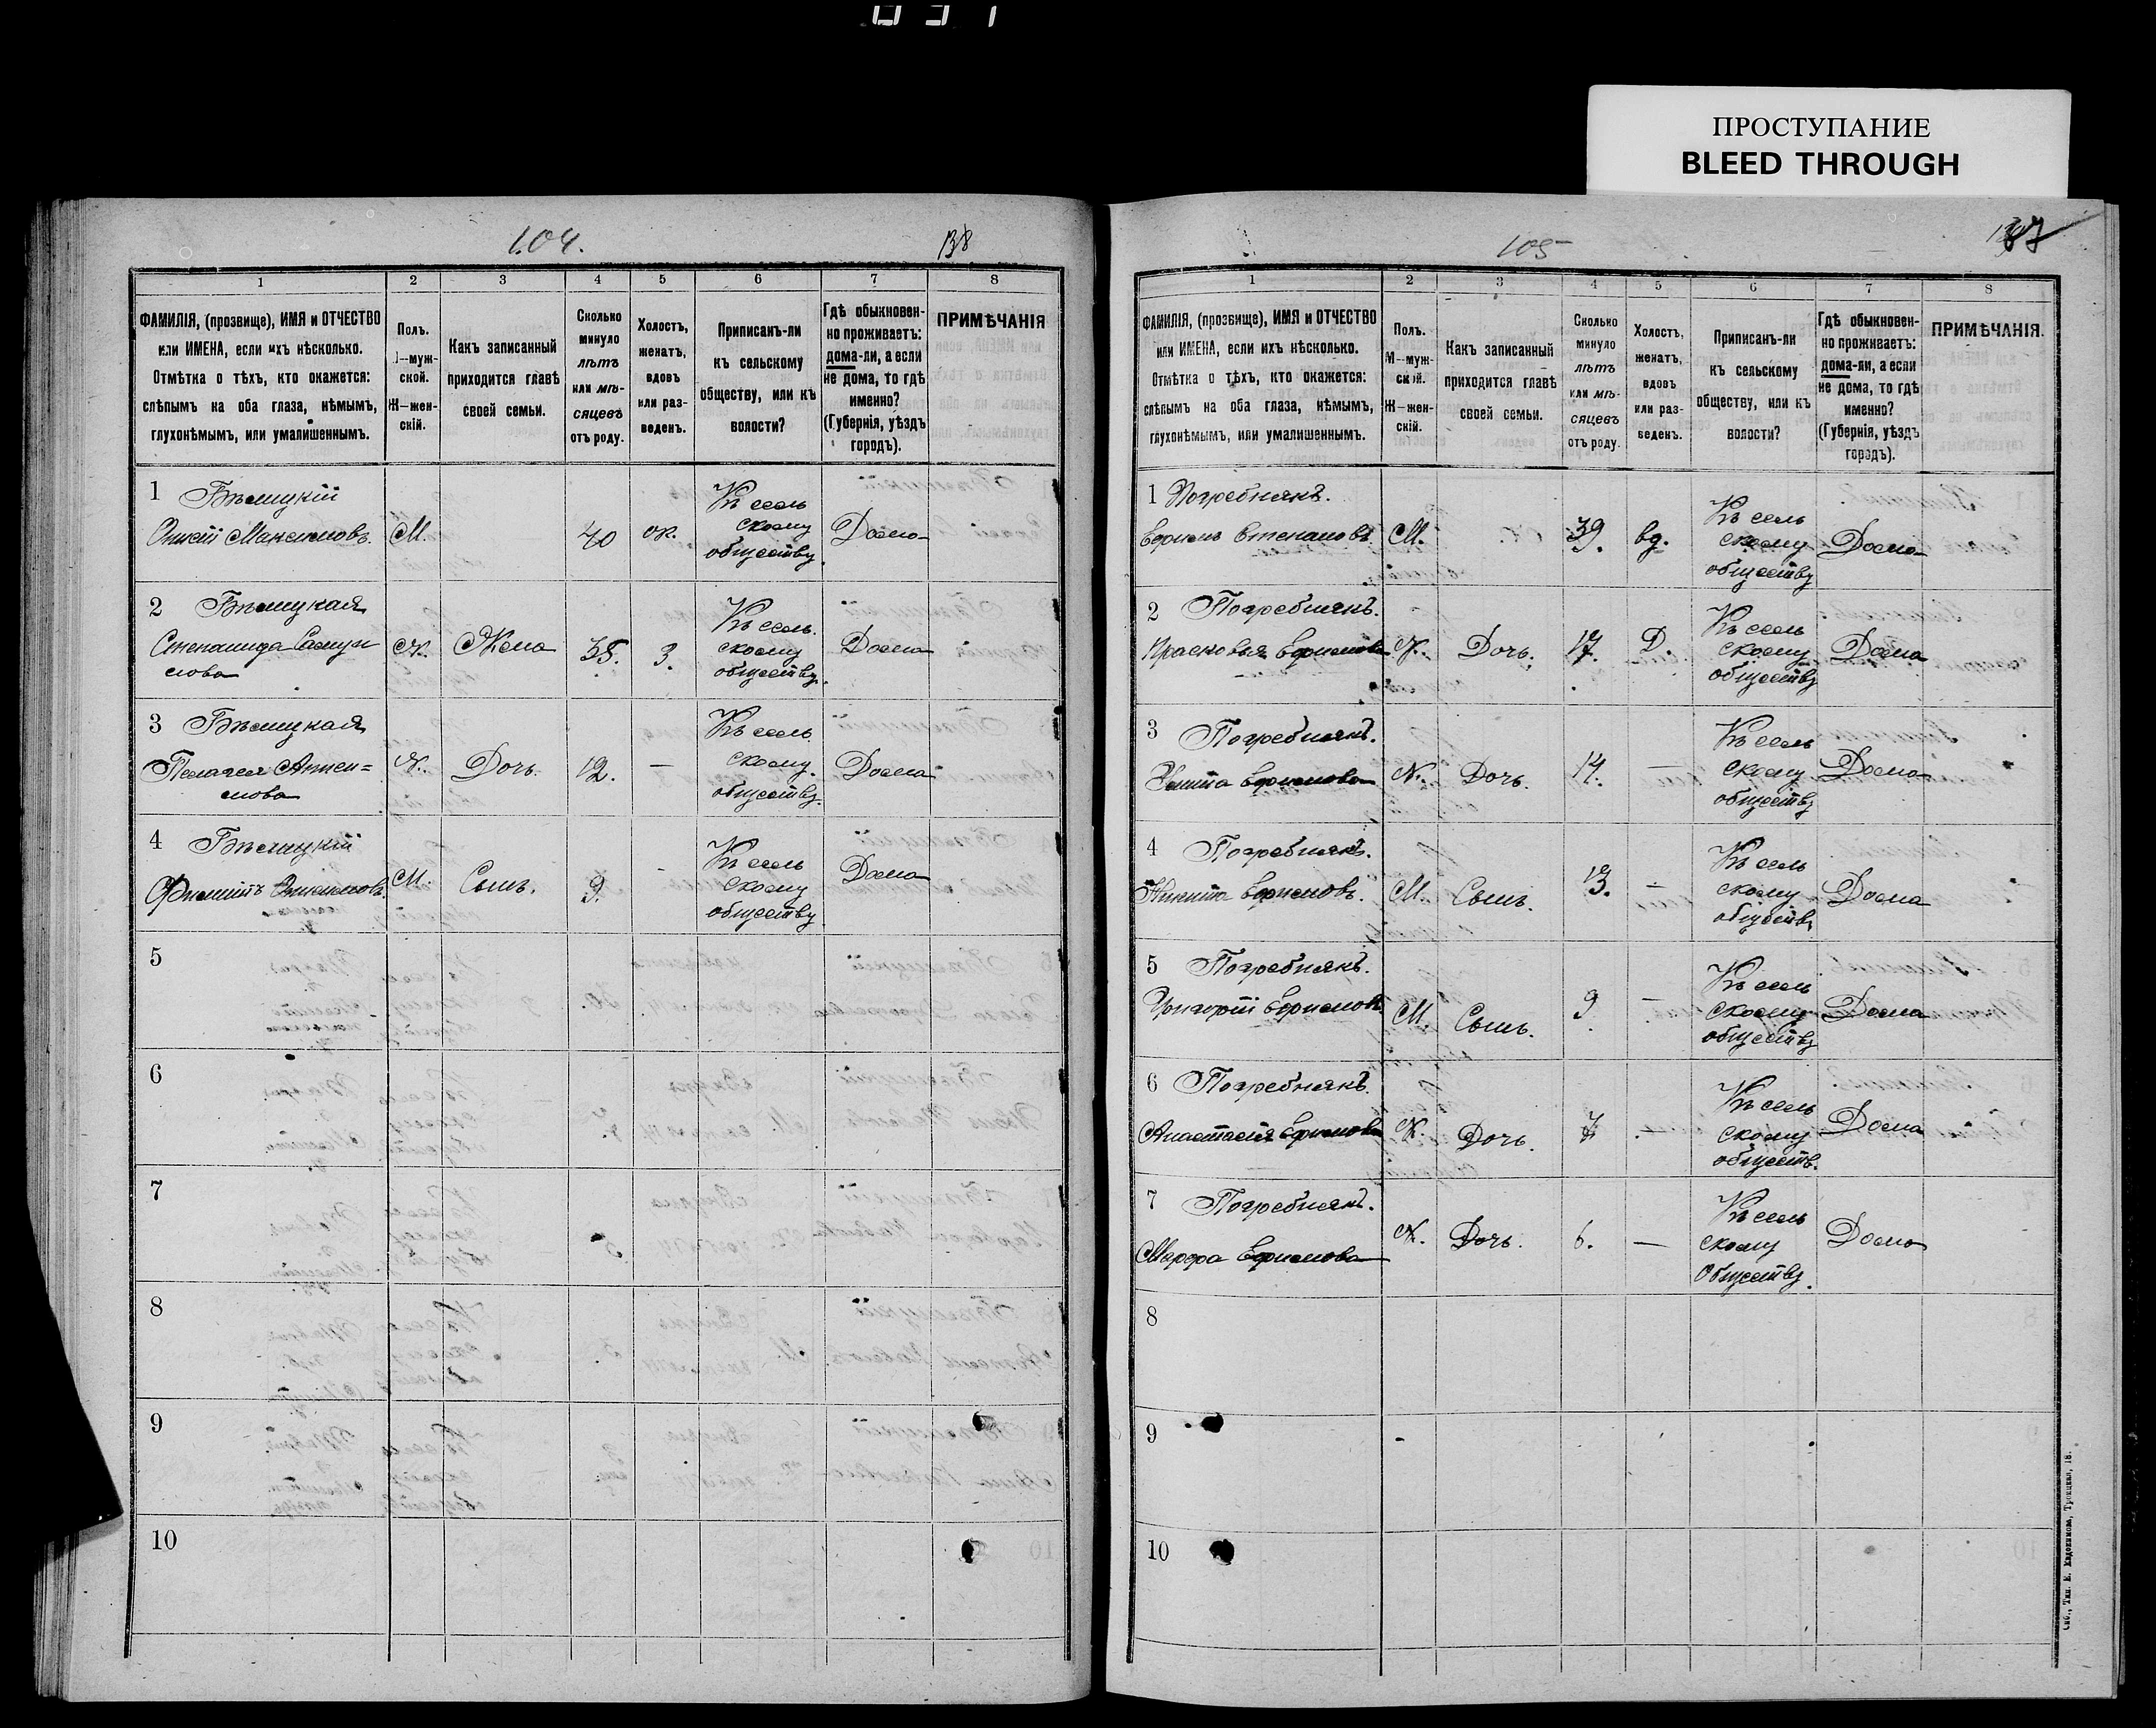 ПРОСТУПАНИЕ
BLEED THROUGH
104.
138
1 2 3 4 5 6 7 8
ФАМИЛІЯ, (прозвище), ИМЯ и ОТЧЕСТВО
или ИМЕНА, если ихъ нѣсколько.
Отмѣтка о тѣхъ, кто окажется:
слѣпымъ на оба глаза, нѣмымъ,
глухонѣмымъ, или умалишеннымъ.
Полъ.
М—муж-
ской.
Ж—жен-
скій.
Какъ записанный
приходится главѣ
своей семьи.
Сколько
минуло
лѣтъ
или мѣ-
сяцевъ
отъ роду.
Холостъ,
женатъ,
вдовъ
или раз-
веденъ.
Приписанъ-ли
къ сельскому
обществу, или къ
волости?
Гдѣ обыкновен-
но проживаетъ:
дома-ли, а если
не дома, то гдѣ
именно?
(Губернія, уѣздъ
городъ).
ПРИМѢЧАНІЯ
1 Бѣлицкій
Максимовъ. М. 40 ж. Къ сель
скому
обществу. Дома
2 Бѣлицкая
Степанида Самуи
лова Ж. Жена 35. З. Къ сель.
скому
обществу. Дома
3 Бѣлицкая
Пелагея
Ж. Дочь. 12. — Къ сель
скому.
обществу. Дома
4 Бѣлицкій
Филиппъ М. Сынъ. 9. - Къ сель
скому
обществу Дома
5
6
7
8
9
10
105
87
1 2 3 4 5 6 7 8
ФАМИЛІЯ, (прозвище), ИМЯ и ОТЧЕСТВО
или ИМЕНА, если ихъ нѣсколько.
Отмѣтка о тѣхъ, кто окажется:
слѣпымъ на оба глаза, нѣмымъ,
глухонѣмымъ, или умалишеннымъ.
Полъ.
М—муж-
ской.
Ж—жен-
скій.
Какъ записанный
приходится главѣ
своей семьи.
Сколько
минуло
лѣтъ
или мѣ-
сяцевъ
отъ роду.
Холостъ,
женатъ,
вдовъ
или раз-
веденъ.
Приписанъ-ли
къ сельскому
обществу, или къ
волости?
Гдѣ обыкновен-
но проживаетъ:
дома-ли, а если
не дома, то гдѣ
именно?
(Губернія, уѣздъ
городъ).
ПРИМѢЧАНІЯ.
1 Погребнякъ.
Ефимъ Степановъ М. 39. вд. Къ сель
скому
обществу Дома
2 Погребнякъ.
Прасковья Ефимова Ж. Дочь. 17. Д. Къ сель
скому
обществу Дома
3 Погребнякъ.
Ефимова Ж. Дочь. 14. — Къ сель
скому
обществу Дома
4 Погребнякъ.
Никита Ефимовъ. М. Сынъ. 13. — Къ сель
скому
обществу Дома
5 Погребнякъ.
Григорій Ефимовъ М. Сынъ. 9 — Къ сель
скому
обществу Дома
6 Погребнякъ.
Анастасія Ефимова Ж. Дочь. 7 — Къ сель
скому
обществ. Дома
7 Погребнякъ.
Марфа Ефимова Ж. Дочь. 6. — Къ сель
скому
Обществу. Дома
8
9
10
Спб., Тип. Е. Евдокимова, Троицкая, 18.